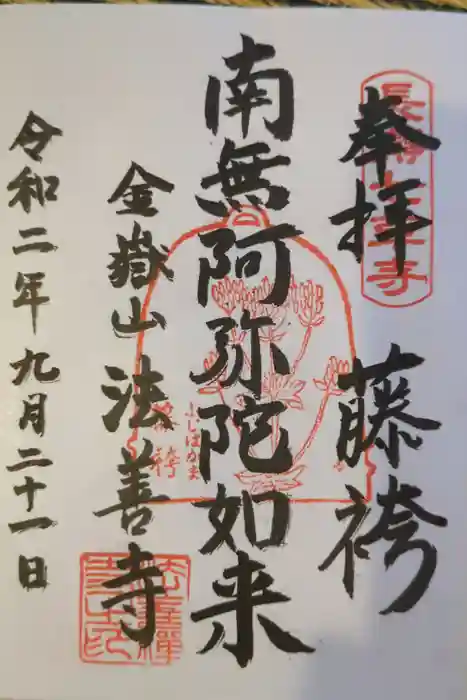 奉拝 藤袴
南無阿弥陀如来
ふじばかま
藤袴
金嶽山 法善寺
令和二年九月二十一日